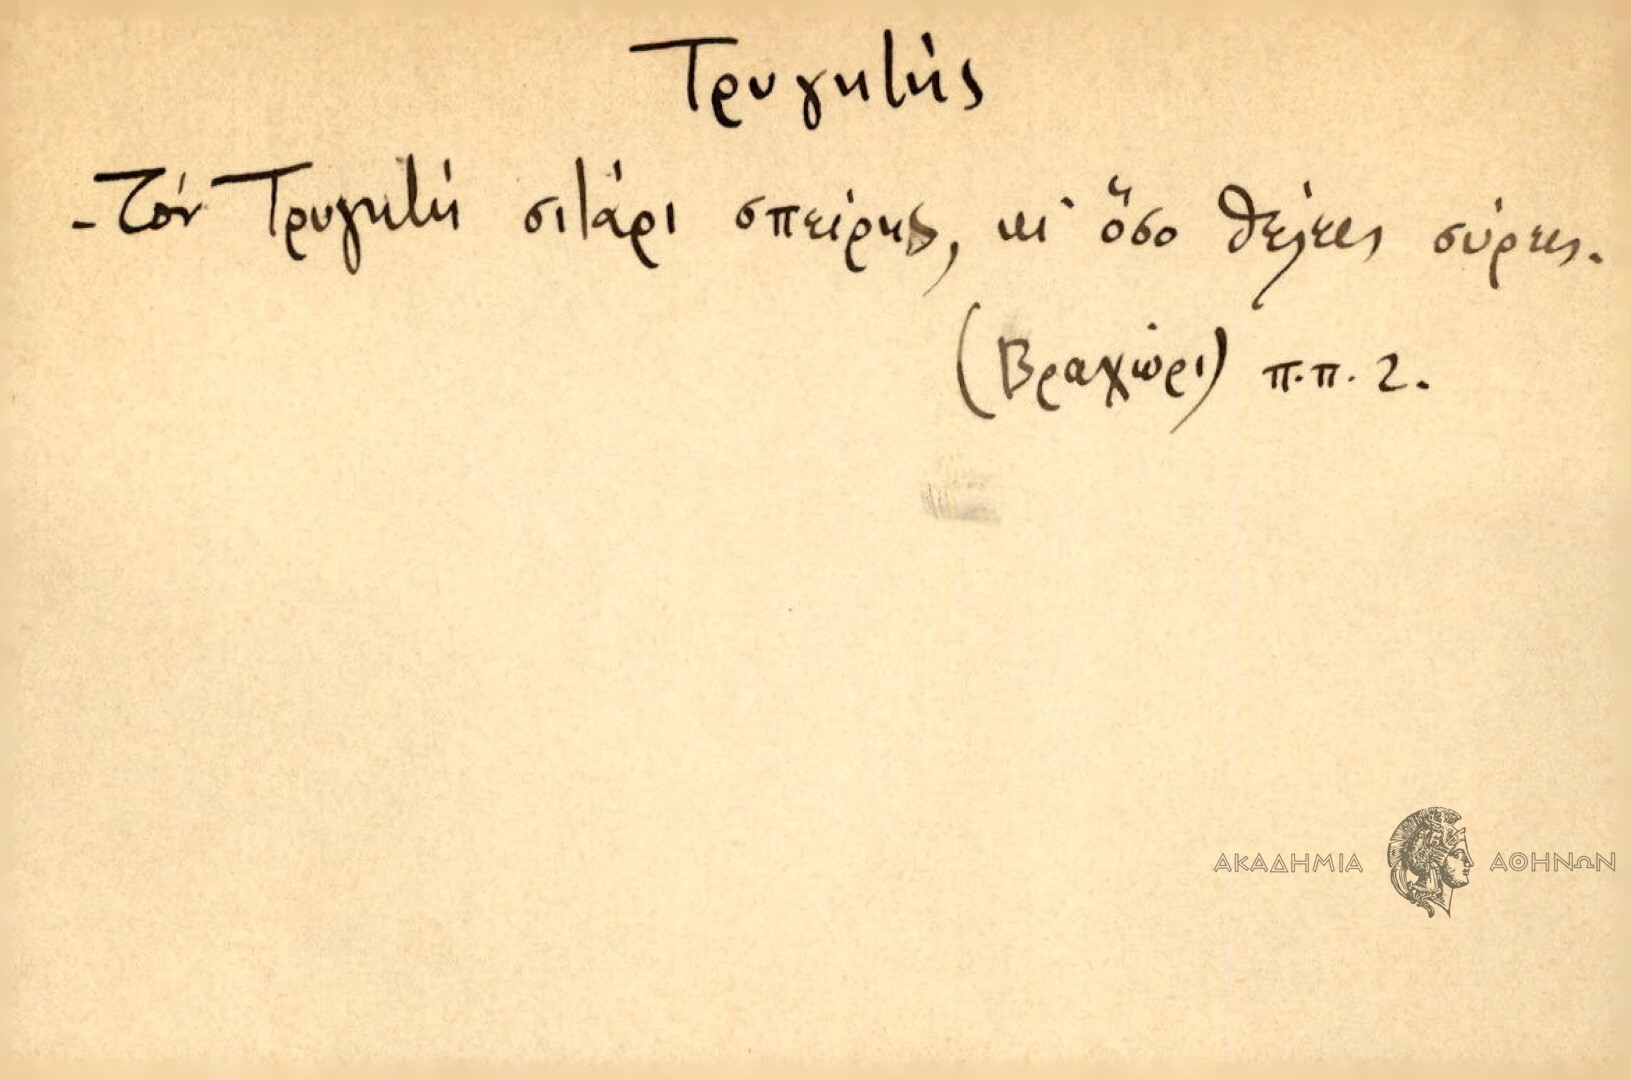 Τρυγητής
- Τόν Τρυγητή σιτάρι σπείρης, κι' ὅσο θέλεις σύρεις.
(Βραχώρι) π.π. 2.
ΑΚΑΔΗΜΙΑ ΑΘΗΝΩΝ